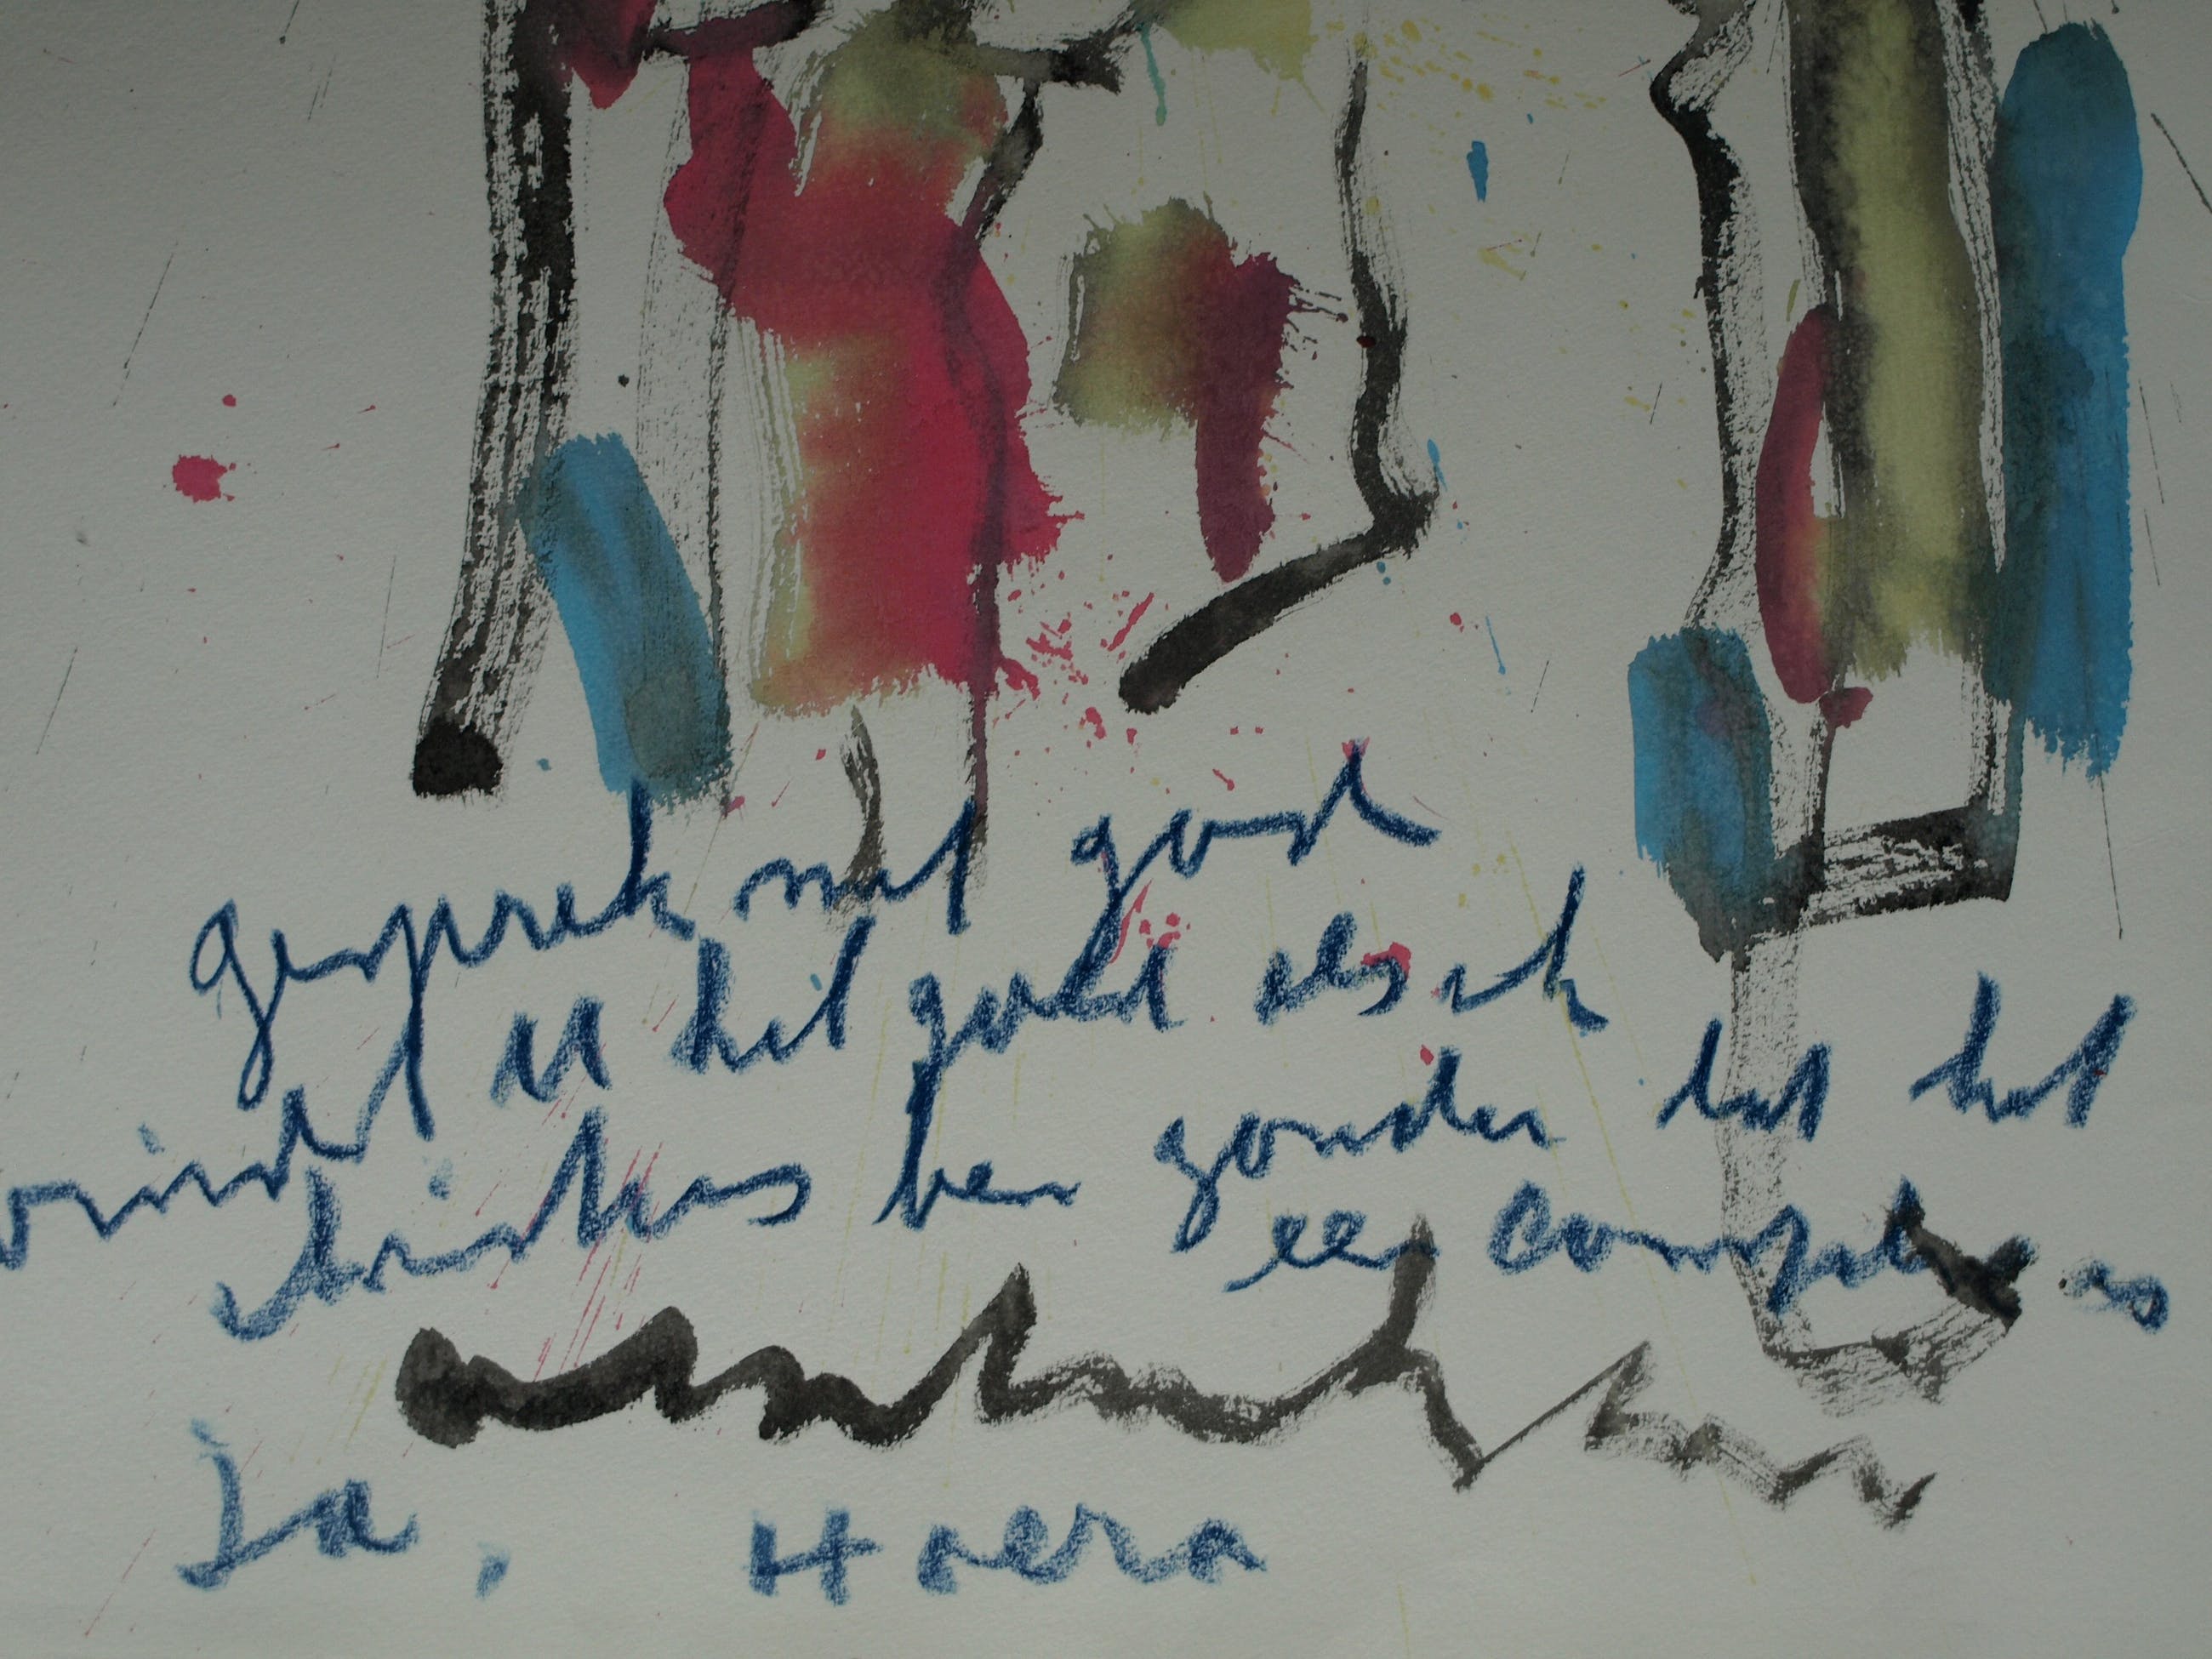 gesprek met god
vindt U het goed als ik
christus ben zonder dat het
een complex is
Ja, Hoera